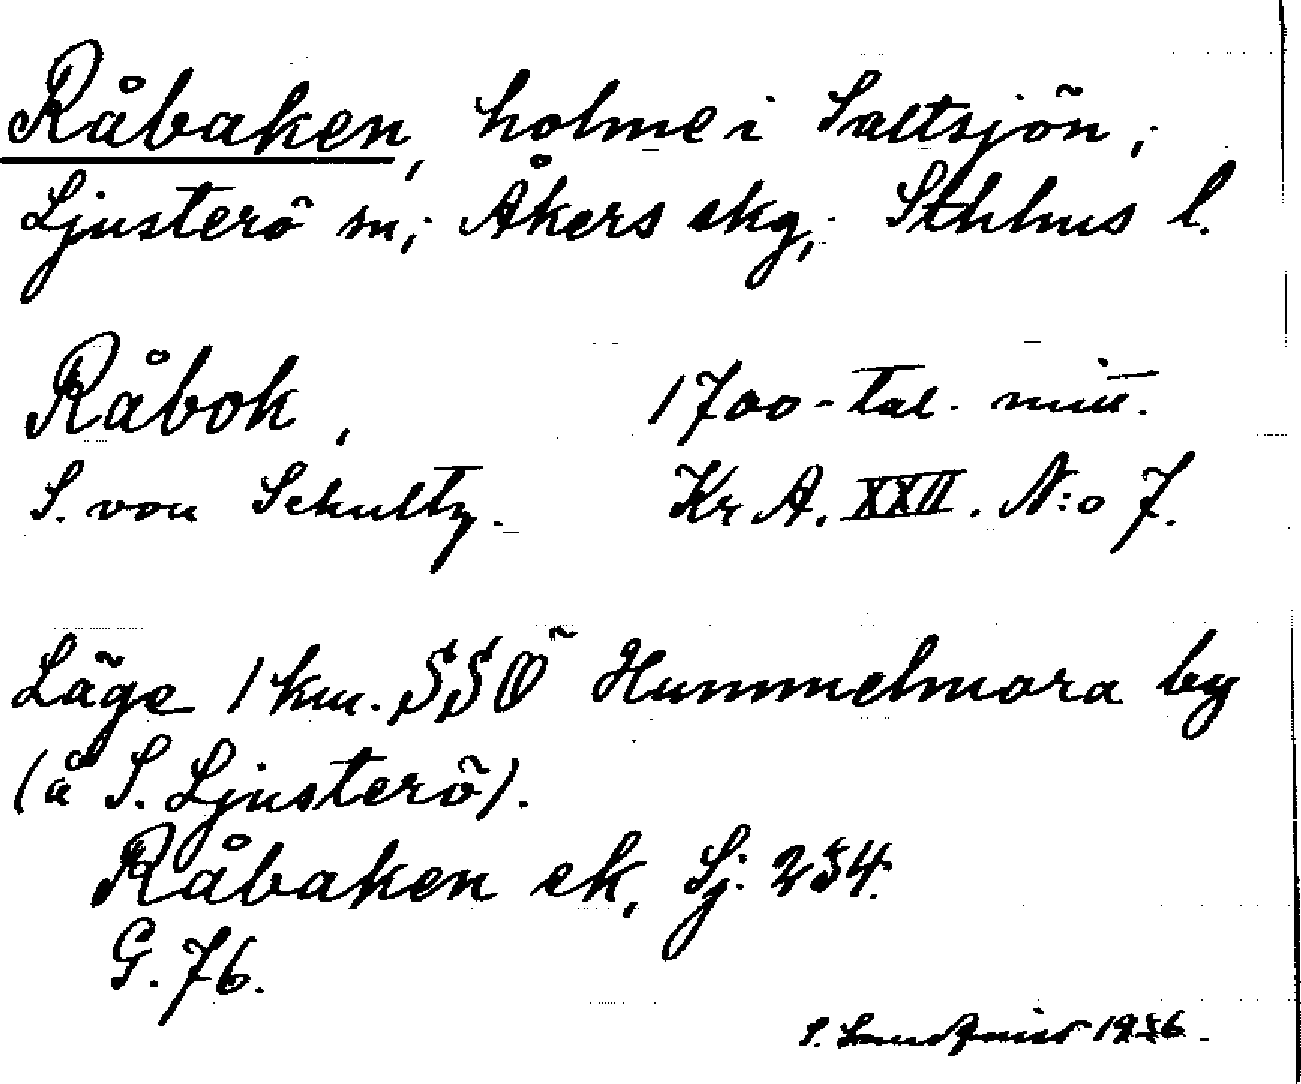 Råbaken, holme i Saltsjön,
Ljusterö sn, Åkers skg, Sthlms l.
Råbok, 1700-tal. mitt.
S. von Schultz. Kr A. XXII. N:o 7.
Läge 1 km. SSÖ Hummelmora by
(å S. Ljusterö).
Råbaken ek, Sj. 234.
G. 76.
1936.